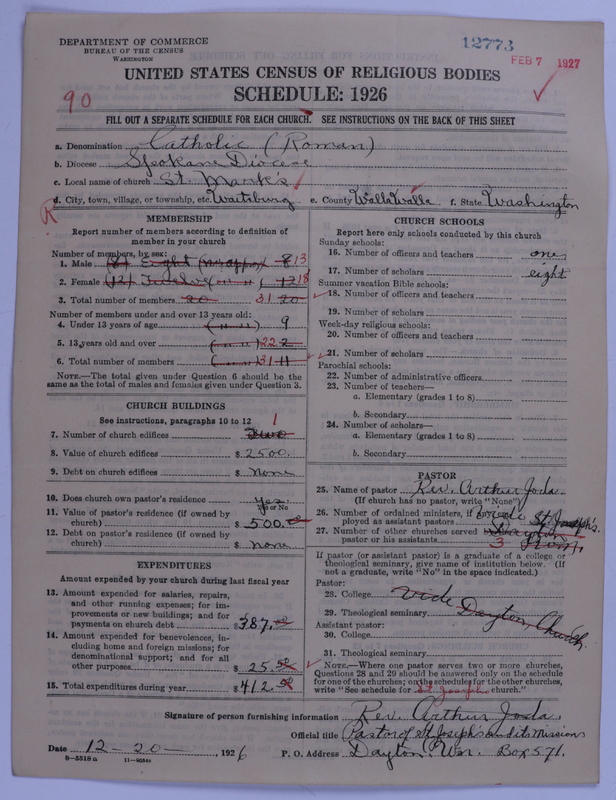 12773
FEB 7 1927
DEPARTMENT OF COMMERCE
BUREAU OF THE CENSUS
WASHINGTON
UNITED STATES CENSUS OF RELIGIOUS BODIES
SCHEDULE: 1926
90
FILL OUT A SEPARATE SCHEDULE FOR EACH CHURCH. SEE INSTRUCTIONS ON THE BACK OF THIS SHEET
a. Denomination Catholic (Roman)
b. Diocese Spokane Diocese
c. Local name of church St. Mark's
d. City, town, village, or township, etc. Waitsburg e. County Walla Walla f. State Washington
R
MEMBERSHIP
Report number of members according to definition of
member in your church
Number of members, by sex:
1. Male (8) Eight (Mrappox 8 13
2. Female (12) Twelve (" ") 12 18
3. Total number of members 20 31 20
Number of members under and over 13 years old:
4. Under 13 years of age (" ") 9
5. 13 years old and over (" ") 22 2
6. Total number of members 31 11
NOTE.—The total given under Question 6 should be the
same as the total of males and females given under Question 3.
CHURCH BUILDINGS
See instructions, paragraphs 10 to 12
7. Number of church edifices Two 1
8. Value of church edifices $ 2500.
9. Debt on church edifices $ None
10. Does church own pastor's residence Yes
Yes or No
11. Value of pastor's residence (if owned by
church) $ 500.00
12. Debt on pastor's residence (if owned by
church) $ None
EXPENDITURES
Amount expended by your church during last fiscal year
13. Amount expended for salaries, repairs,
and other running expenses; for im-
provements or new buildings; and for
payments on church debt $ 387.00
14. Amount expended for benevolences, in-
cluding home and foreign missions; for
denominational support; and for all
other purposes $ 25.00
15. Total expenditures during year $ 412.00
CHURCH SCHOOLS
Report here only schools conducted by this church
Sunday schools:
16. Number of officers and teachers one
17. Number of scholars eight
Summer vacation Bible schools:
18. Number of officers and teachers
19. Number of scholars
Week-day religious schools:
20. Number of officers and teachers
21. Number of scholars
Parochial schools:
22. Number of administrative officers
23. Number of teachers—
a. Elementary (grades 1 to 8)
b. Secondary
24. Number of scholars—
a. Elementary (grades 1 to 8)
b. Secondary
PASTOR
25. Name of pastor Rev. Arthur Joda.
(If church has no pastor, write "None")
26. Number of ordained ministers, if any, em-
ployed as assistant pastors vide St Joseph's.
27. Number of other churches served by
pastor or his assistants Dayton 3
If pastor (or assistant pastor) is a graduate of a college or
theological seminary, give name of institution below. (If
not a graduate, write "No" in the space indicated.)
Pastor:
28. College
29. Theological seminary
vide Dayton, Church.
Assistant pastor:
30. College
31. Theological seminary
NOTE.—Where one pastor serves two or more churches,
Questions 28 and 29 should be answered only on the schedule
for one of the churches; on the schedules for the other churches,
write "See schedule for St Josephs church."
Signature of person furnishing information Rev. Arthur Joda.
Official title Pastor of St Josephs and its Missions
Date 12-20-, 1926 P. O. Address Dayton, Wn. Box 571.
8-5518a 11-9054a